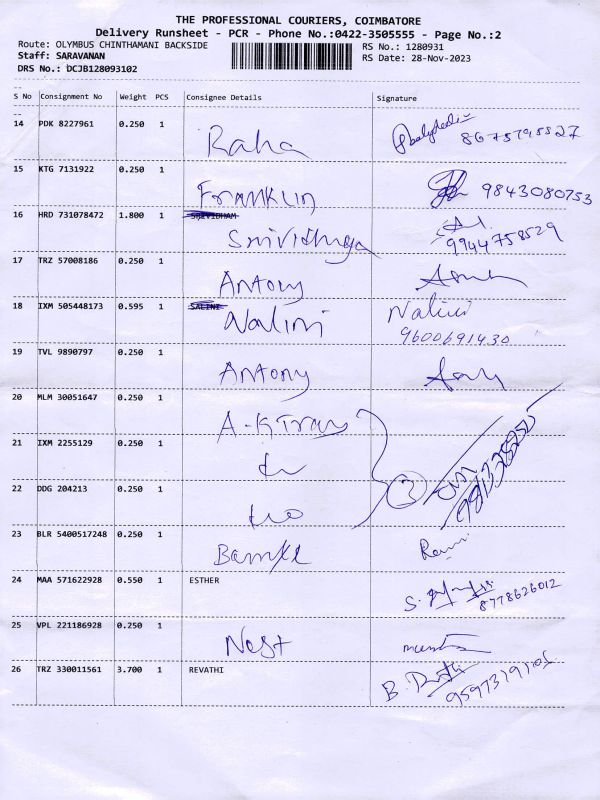 THE PROFESSIONAL COURIERS, COIMBATORE
Delivery Runsheet - PCR - Phone No.:0422-3505555 - Page No.:2
Route: OLYMBUS CHINTHAMANI BACKSIDE RS No.: 1280931
Staff: SARAVANAN RS Date: 28-Nov-2023
DRS No.: DCJB128093102
S No Consignment No Weight PCS Consignee Details Signature
14 PDK 8227961 0.250 1 Raha
15 KTG 7131922 0.250 1 Franklin 9843080753
16 HRD 731078472 1.800 1 SRIVIDHAM
Srividhya 9944758529
17 TRZ 57008186 0.250 1 Antony
18 IXM 505448173 0.595 1 SALINI
Nalini Nalini
9600691430
19 TVL 9890797 0.250 1 Antony
20 MLM 30051647 0.250 1 A-Kiran
21 IXM 2255129 0.250 1
22 DDG 204213 0.250 1
23 BLR 5400517248 0.250 1
24 MAA 571622928 0.550 1 ESTHER
8778626012
25 VPL 221186928 0.250 1 Nest
26 TRZ 330011561 3.700 1 REVATHI